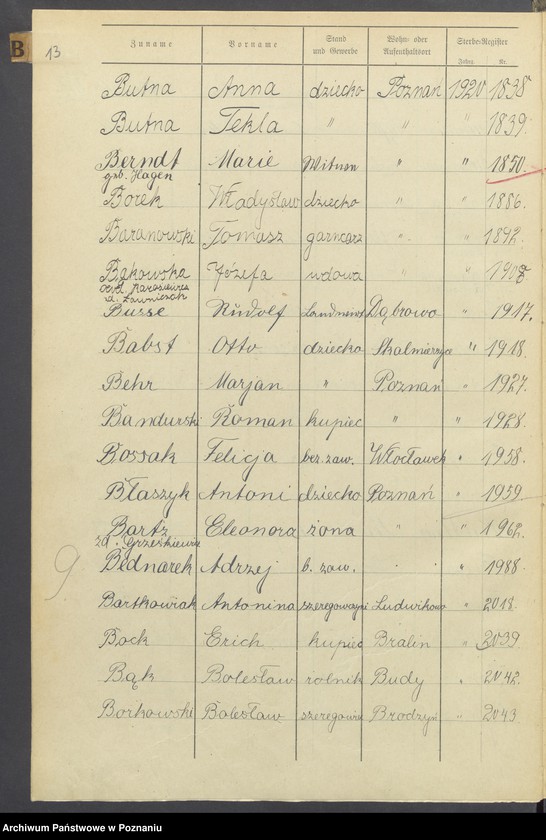 B
13
Zuname Vorname Stand und Gewerbe Wohn- oder Aufenthaltsort Sterbe-Register
Jahrg. Nr.
Butna Anna dziecko Poznań 1920 1838
Butna Tekla " " " 1839.
Berndt Marie Witwe " " 1850.
geb. Hagen
Borek Władysław dziecko " " 1886.
Baranowski Tomasz garncarz " " 1892.
Bąkowska Józefa wdowa " " 1908
Busse Rudolf Landwirt Dąbrowo " 1917.
Babst Otto dziecko Skalmierzyce " 1918.
Behr Marjan " Poznań " 1927.
Bandurski Roman kupiec " " 1928.
Bossak Felicja bez. zaw. Włocławek " 1958.
Błaszyk Antoni dziecko Poznań " 1959.
Bartz Eleonora żona " " 1962.
zd. Grześkiewicz
9
Bednarek Adrzej b. zaw. " " 1988.
Bartkowiak Antonina szeregowy Ludwikowo " 2018.
Bock Erich kupiec Bralin " 2039.
Bąk Bolesław rolnik Budy " 2042.
Borkowski Bolesław szeregowiec Brodzyń " 2043.
Archiwum Państwowe w Poznaniu